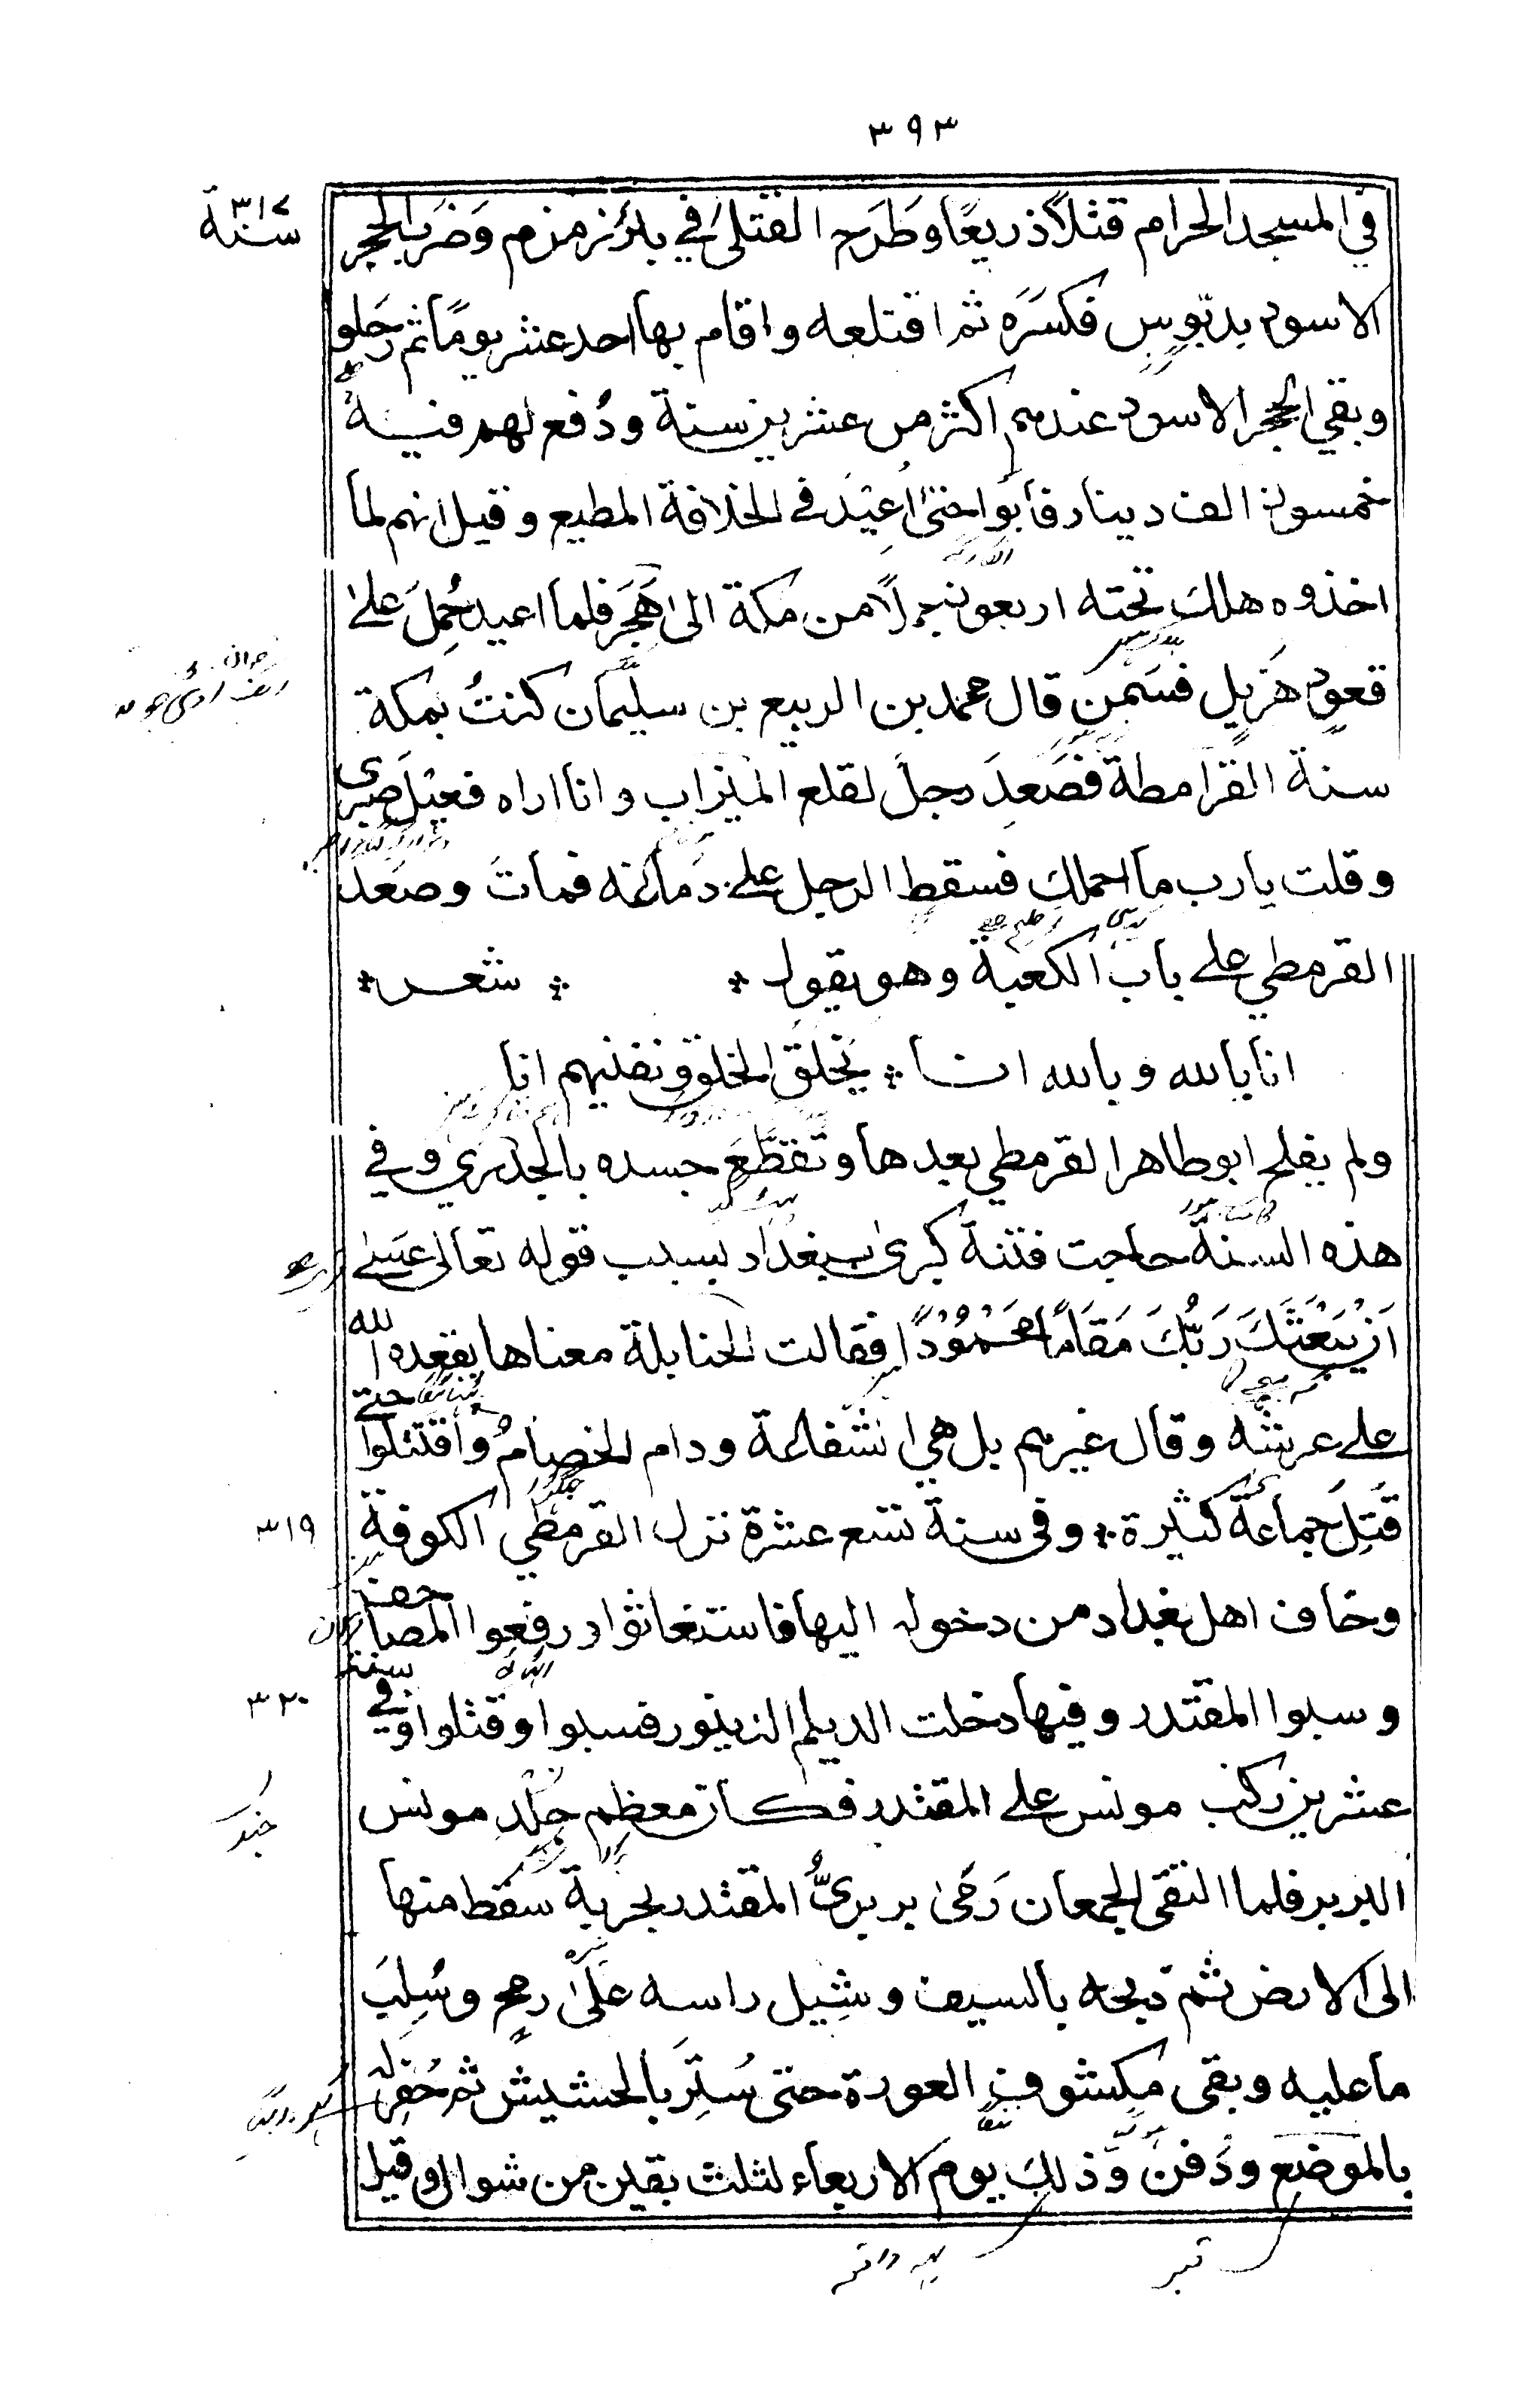 ٣٩٣
سنة ٣١٧
في المسجد الحرام قتلاً ذريعًا وطَرَح القتلىٰ في بئر زمزم وَضَرب الحجر
الاسود بدبّوسٍ فكسَرَه ثم اقتلعه واقام بها احد عشر يومًا ثم رَحَلو
وبقي الحجر الاسود عندهم اكثر من عشرين سنة ودُفع لهم فيه
خمسون الف دينار فأبَوا حتىٰ اُعِيْدَ في الخلافة المطيع وقيل انهم لما
اخذوه هلك تحته اربعون جملاً من مكة الىٰ هَجَر فلما اعيد حُمِلَ علىٰ
قعودٍ هَزيلٍ فسَمِن قال محمد بن الربيع بن سليمان كنتُ بمكة
سنة القرامطة فصَعِدَ رجلٌ لقلع الميزاب وانا اراه فعِيْلَ صبري
وقلت يا رب ما احملك فسقط الرجل علے دَماغه فمات وصَعَدَ
القرمطي علے باب الكعبة وهو يقول * * شعر *
انا بالله وبالله انا * يَخلقُ الخلق ونفنيهم انا
ولم يفلح ابو طاهر القرمطي بعدها وتقطَّعَ جسده بالجُدَري وفي
هذه السنة هاجت فتنة كبرىٰ ببغداد بسبب قوله تعالى عَسٰى
اَنْ يَبْعَثَكَ رَبُّكَ مَقَامًا مَّحْمُوْدًا فقالت الحنابلة معناها يقعده الله
علے عرشه وقال غيرهم بل هي الشفاعة ودام الخصامُ واقتتلوا حتے
قُتِلَ جماعةٌ كثيرة * وفي سنة تسع عشرة نزل القرمطي الكوفة
٣١٩
وخاف اهل بغداد من دخوله اليها فاستغاثوا ورفعوا المصاحف
وسبوا المقتدر وفيها دخلت الديلم الدينور فسبوا وقتلوا وفي سنة
٣٢٠
عشرين ركب مونس علے المقتدر فكان معظم جُنْدِ مونس
البربر فلما التقى الجمعان رَمىٰ بربريٌّ المقتدر بحربة سقط منها
الى الارض ثم ذبحه بالسيف وشِيل راسه علىٰ رمح وسُلِبَ
ما عليه وبقي مكشوفَ العورة حتى سُتِرَ بالحشيش ثم حُفِر له
بالموضع ودُفن وذلك يوم الاربعاء لثلث بقين من شوال وقيل
قبر